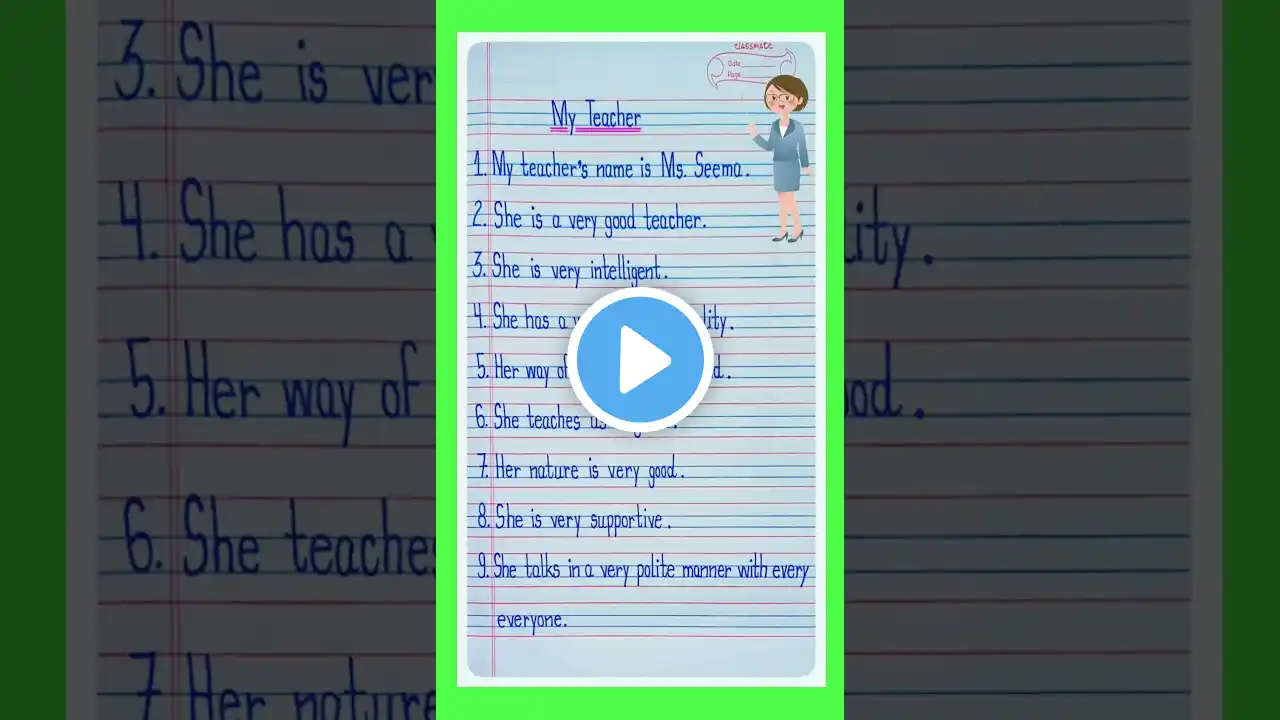 classmate
Date
Page
My Teacher
1. My teacher's name is Ms. Seema.
2. She is a very good teacher.
3. She is very intelligent.
4. She has a
5. Her way of
6. She teaches
7. Her nature is very good.
8. She is very supportive.
9. She talks in a very polite manner with every
everyone.
3. She is
4. She has a
5. Her way of
6. She teaches
7. Her nature